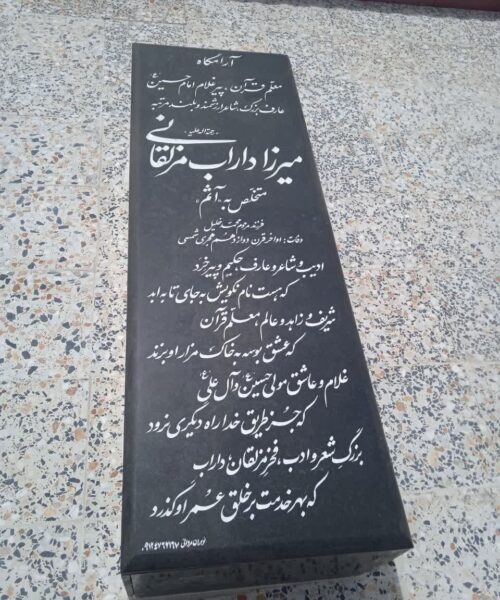 آرامگاه
معلم قرآن، پیر غلام امام حسین ع
عارف بزرگ، شاعر ارزشمند و بلند مرتبه
رحمة الله علیه
میرزا داراب مزلقانی
متخلص به "آثم"
فرزند مرحوم محمد خلیل
وفات: اواخر قرن دوازدهم هجری شمسی
ادیب و شاعر و عارف، حکیم و پیر خرد
که هست نام نکویش به جای تا به ابد
شریف و زاهد و عالم، معلم قرآن
که عشق بوسه به خاک مزار او بزند
غلام و عاشق مولی حسین ع و آل علی ع
که جز طریق خدا راه دیگری نرود
بزرگ شعر و ادب، فخر مزلقان، داراب
که بهر خدمت بر خلق عمر او گذرد